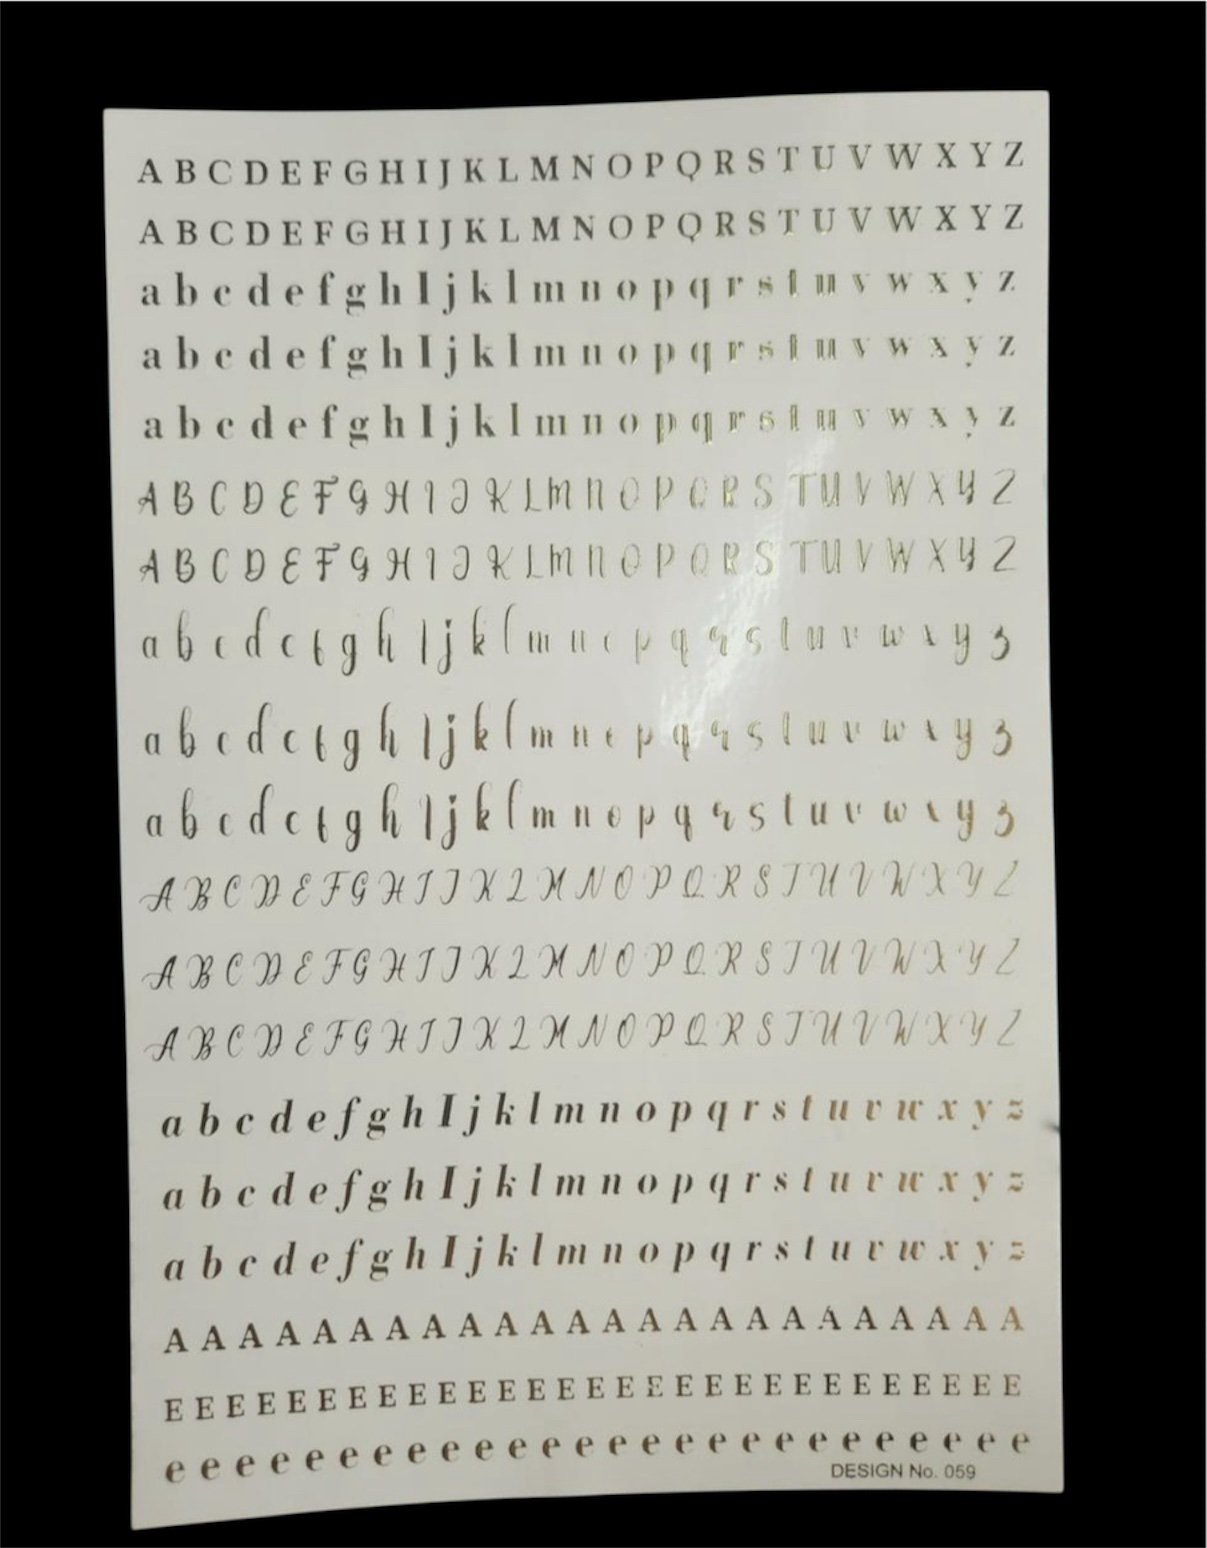 A B C D E F G H I J K L M N O P Q R S T U V W X Y Z
A B C D E F G H I J K L M N O P Q R S T U V W X Y Z
a b c d e f g h I j k l m n o p q r s t u v w x y z
a b c d e f g h I j k l m n o p q r s t u v w x y z
a b c d e f g h I j k l m n o p q r s t u v w x y z
A B C D E F G H I J K L M N O P Q R S T U V W X Y Z
A B C D E F G H I J K L M N O P Q R S T U V W X Y Z
a b c d e f g h I j k l m n o p q r s t u v w x y z
a b c d e f g h I j k l m n o p q r s t u v w x y z
a b c d e f g h I j k l m n o p q r s t u v w x y z
A B C D E F G H I J K L M N O P Q R S T U V W X Y Z
A B C D E F G H I J K L M N O P Q R S T U V W X Y Z
A B C D E F G H I J K L M N O P Q R S T U V W X Y Z
a b c d e f g h I j k l m n o p q r s t u v w x y z
a b c d e f g h I j k l m n o p q r s t u v w x y z
a b c d e f g h I j k l m n o p q r s t u v w x y z
A A A A A A A A A A A A A A A A A A A A A A A A
E E E E E E E E E E E E E E E E E E E E E E E E E E E E E
e e e e e e e e e e e e e e e e e e e e e e e e e e
DESIGN No. 059